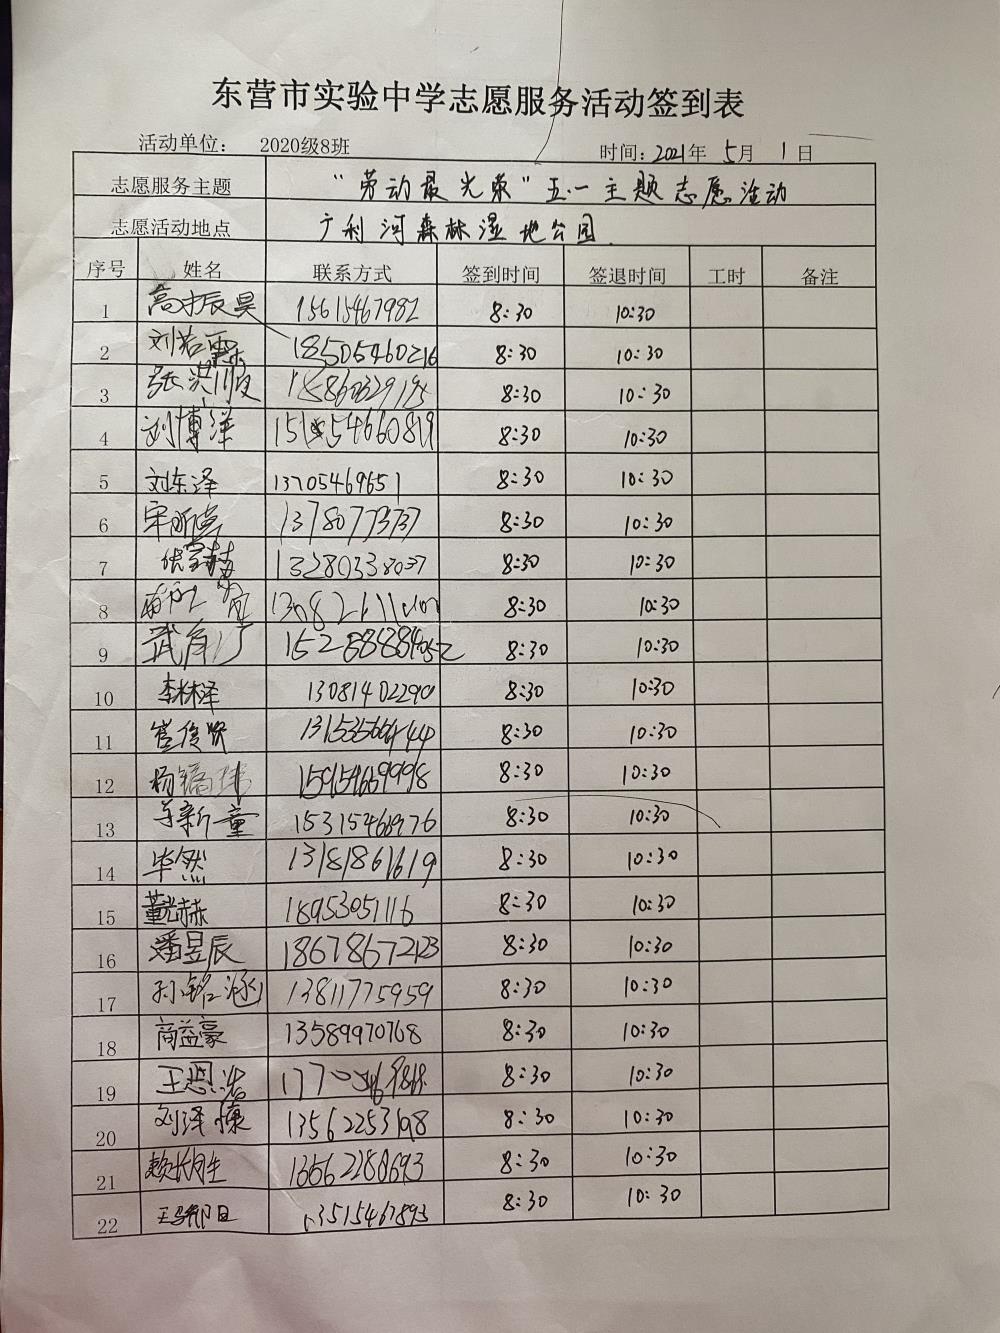 东营市实验中学志愿服务活动签到表
活动单位： 2020级8班 时间：2021年 5月 1日
志愿服务主题 “劳动最光荣”五一主题志愿活动
志愿活动地点 广利河森林湿地公园
序号 姓名 联系方式 签到时间 签退时间 工时 备注
1 高振昊 15615467982 8:30 10:30
2 刘若霖 18505460216 8:30 10:30
3 张洪顺 8:30 10:30
4 刘博洋 8:30 10:30
5 刘东泽 13705469651 8:30 10:30
6 13780773737 8:30 10:30
7 13280338037 8:30 10:30
8 8:30 10:30
9 8:30 10:30
10 李林泽 13081402290 8:30 10:30
11 8:30 10:30
12 8:30 10:30
13 8:30 10:30
14 毕然 13181861619 8:30 10:30
15 董兆赫 18953051116 8:30 10:30
16 潘昱辰 18678672123 8:30 10:30
17 孙铭涵 13811775959 8:30 10:30
18 商益豪 13589970768 8:30 10:30
19 王思浩 8:30 10:30
20 刘泽慷 13562253198 8:30 10:30
21 13562288693 8:30 10:30
22 13515467893 8:30 10:30